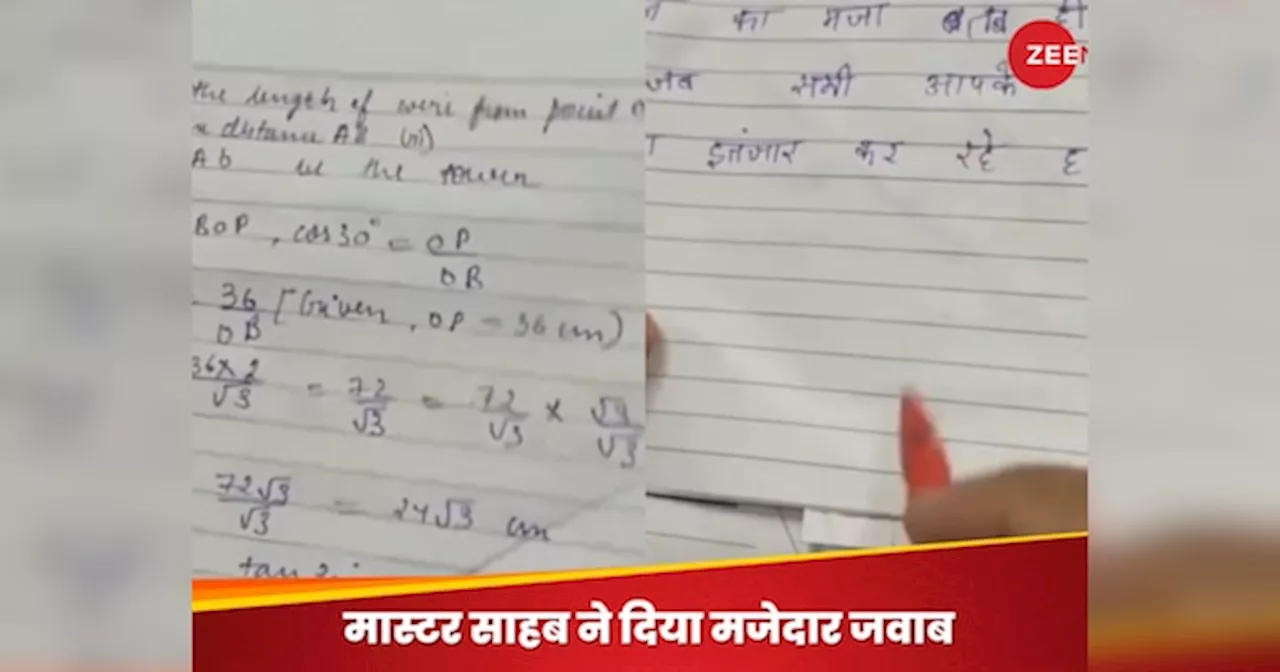 the length of wire from point O
x distance AB (ii)
Ab be the tower
BOP, cos30° = OP
OB
36 [Given, OP = 36 cm)
OB
36x2 = 72 = 72 x √3
√3 √3 √3 √3
72√3 = 24√3 cm
√3
tan
का मजा तब ही
जब सभी आपके
इतंजार कर रहे ह
ZEE
मास्टर साहब ने दिया मजेदार जवाब